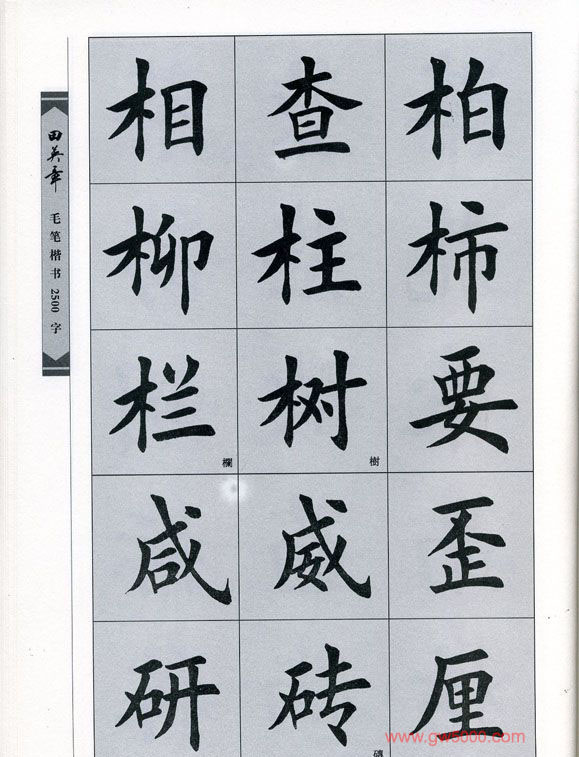 田英章
毛笔楷书2500字
相 查 柏
柳 柱 柿
栏 树 要
欄 樹
咸 威 歪
研 砖 厘
www.gw5000.com